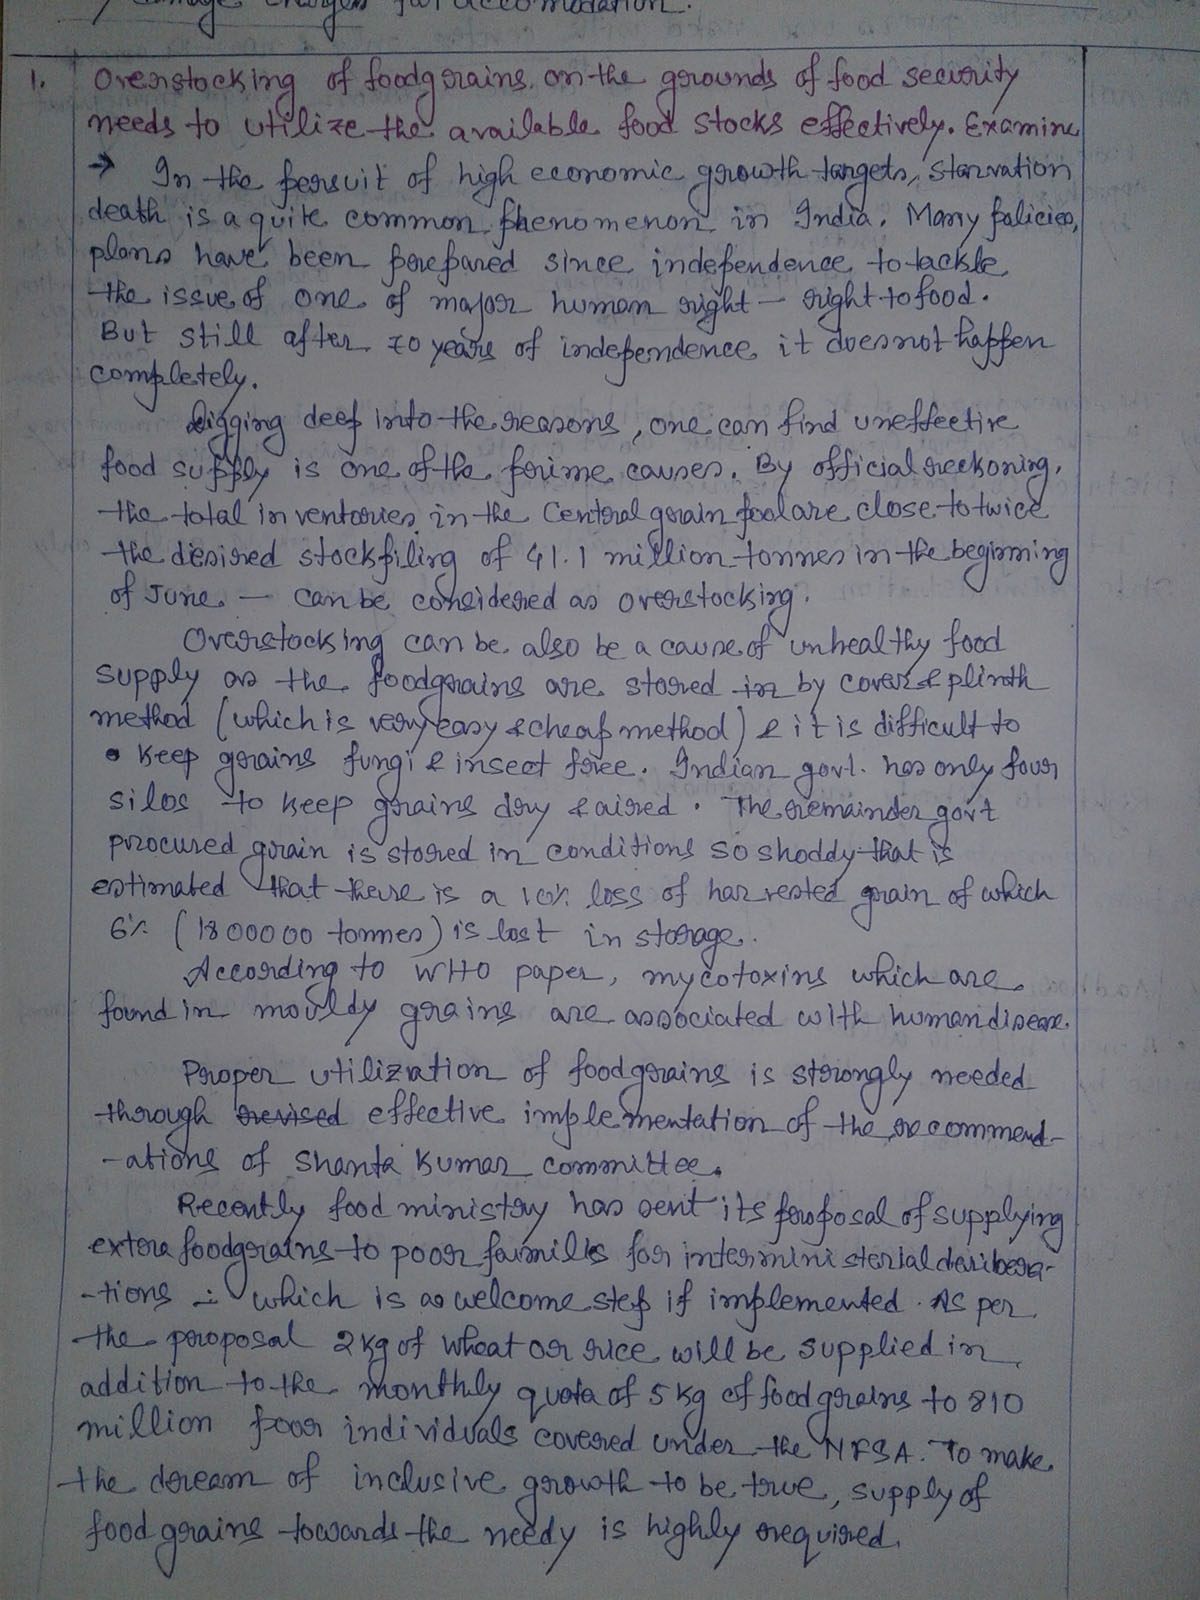 damage charges for accomodation.
1. Overstocking of foodgrains on the grounds of food security
needs to utilize the available food stocks effectively. Examine
→ In the persuit of high economic growth targets, starvation
death is a quite common phenomenon in India. Many policies,
plans have been prepared since independence to tackle
the issue of one of major human right - right to food.
But still after 70 years of independence it does not happen
completely.
Digging deep into the reasons, one can find uneffective
food supply is one of the prime causes. By official reckoning,
the total inventories in the Central grain pool are close to twice
the desired stockpiling of 41.1 million tonnes in the beginning
of June - can be considered as overstocking.
Overstocking can be also be a cause of unhealthy food
supply as the foodgrains are stored in by cover & plinth
method (which is very easy & cheap method) & it is difficult to
• keep grains fungi & insect free. Indian govt. has only four
silos to keep grains dry & aired. The remainder govt
procured grain is stored in conditions so shoddy that is
estimated that there is a 10% loss of harvested grain of which
6% (1800000 tonnes) is lost in storage.
According to WHO paper, mycotoxins which are
found in mouldy grains are associated with human disease.
Proper utilization of foodgrains is strongly needed
through revised effective implementation of the recommend-
-ations of Shanta Kumar committee.
Recently food ministry has sent its proposal of supplying
extra foodgrains to poor families for interministerial deribera-
-tions - which is as welcome step if implemented. As per
the proposal 2kg of wheat or rice will be supplied in
addition to the monthly quota of 5 kg of foodgrains to 810
million poor individuals covered under the NFSA. To make
the dream of inclusive growth to be true, supply of
food grains towards the needy is highly required.